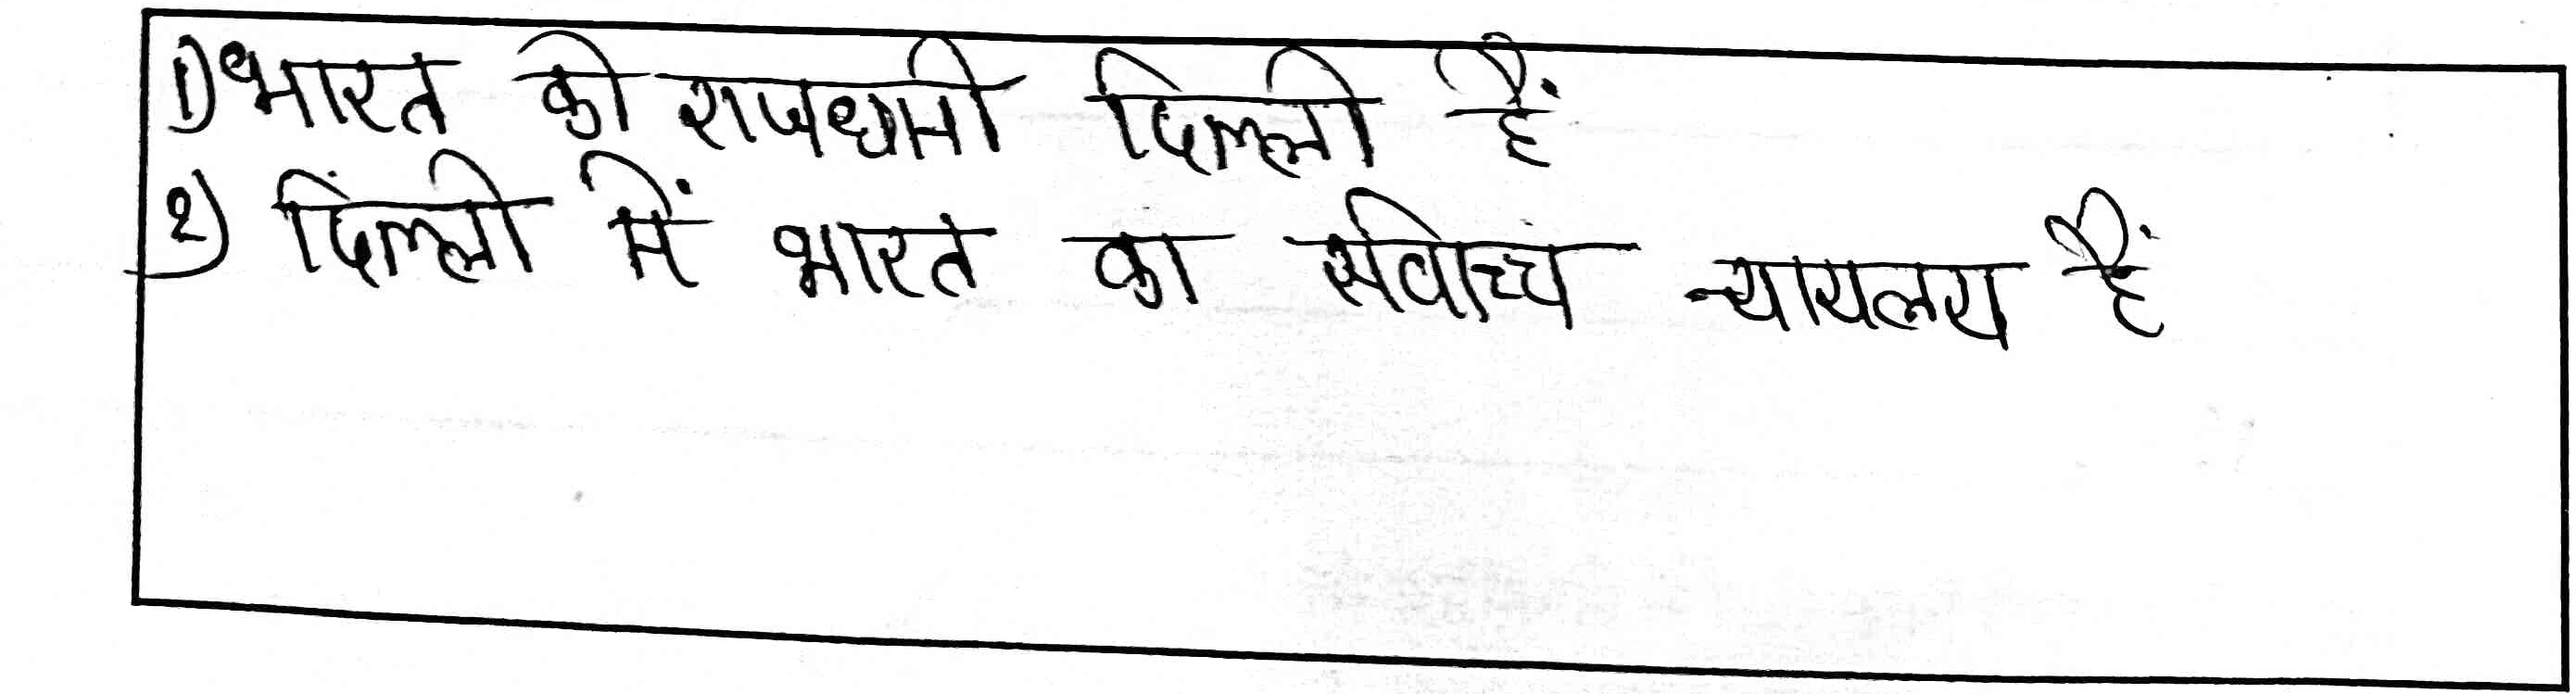 1) भारत की राजधानी दिल्ली हैं
2) दिंल्ली में भारत का र्सवोच्च न्यायलय हैं